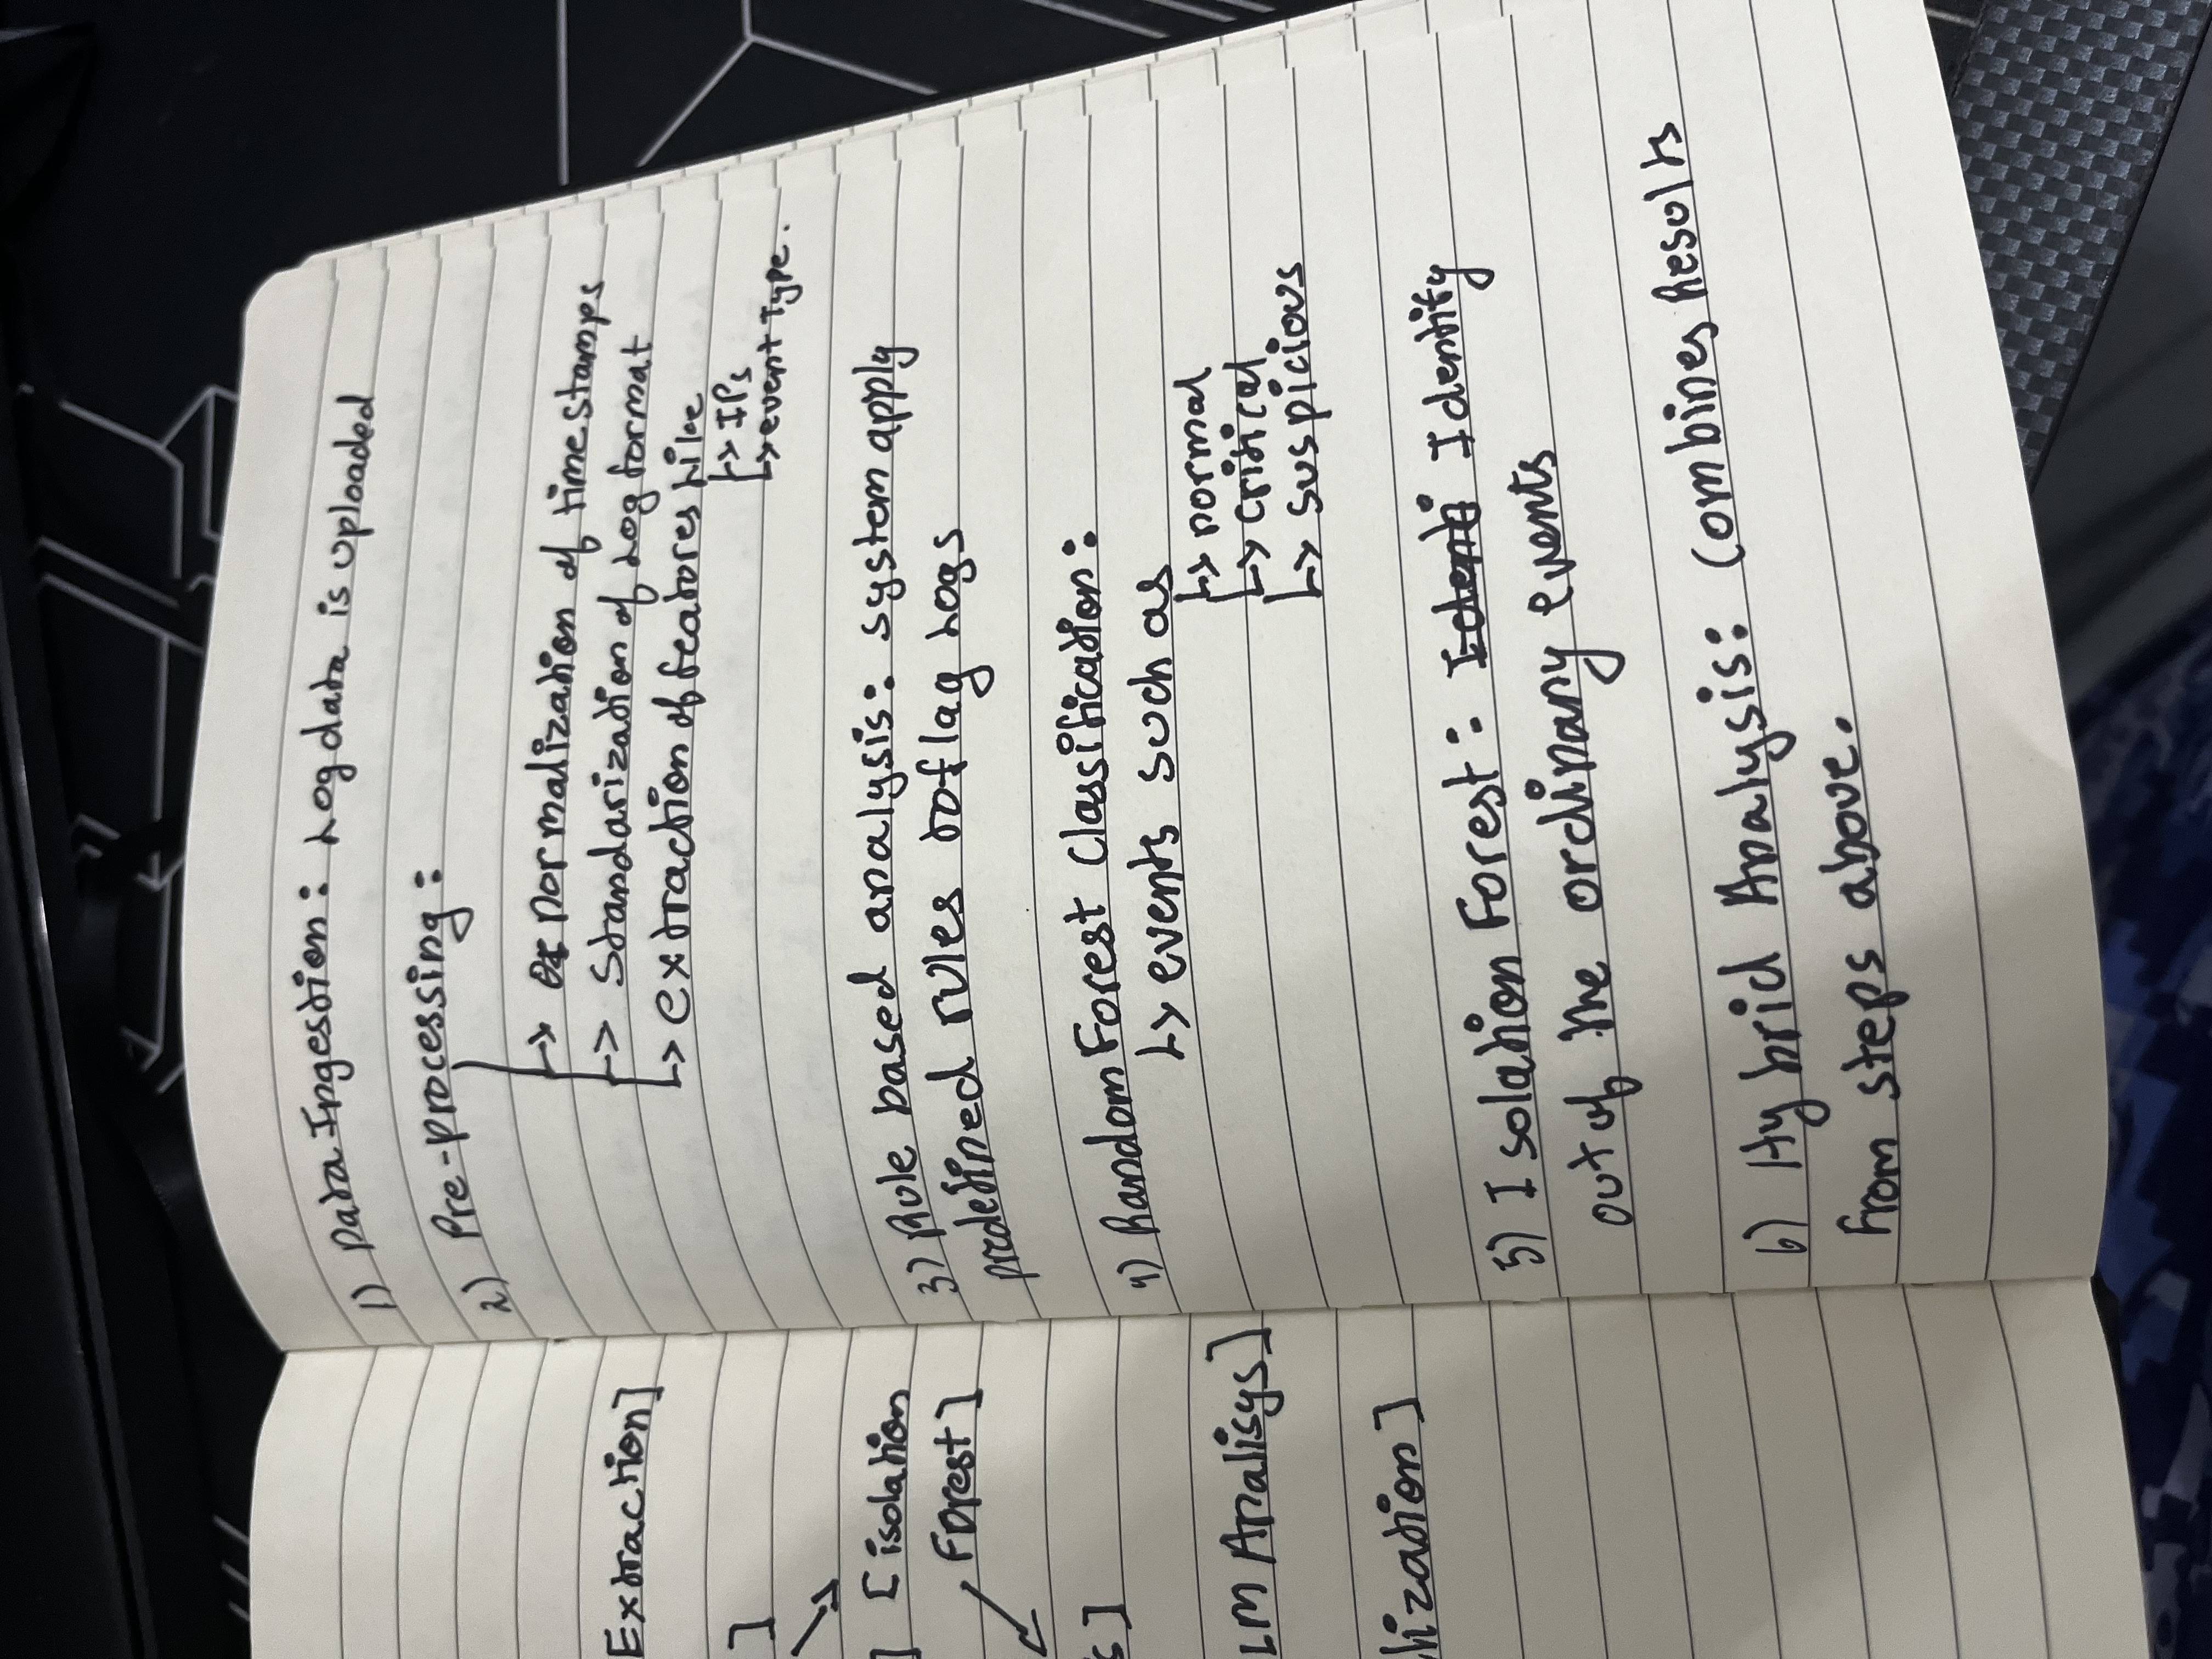 Extraction]
]
] [isolation
Forest]
s]
LM Analisys]
lization]
1) Data Ingestion: Log data is uploaded
2) Pre-processing:
↳ normalization of timestamps
↳ Standarization of Log format
↳ extraction of features Like
↳ IPs
↳ event Type.
3) Rule based analysis: system apply
predefined rules to flag Logs
4) Random Forest Classification:
↳ events such as
↳ normal
↳ critical
↳ suspicious
5) Isolation Forest: Identi Identify
out of the ordinany events
6) Hybrid Analysis: Combines Results
From steps above.